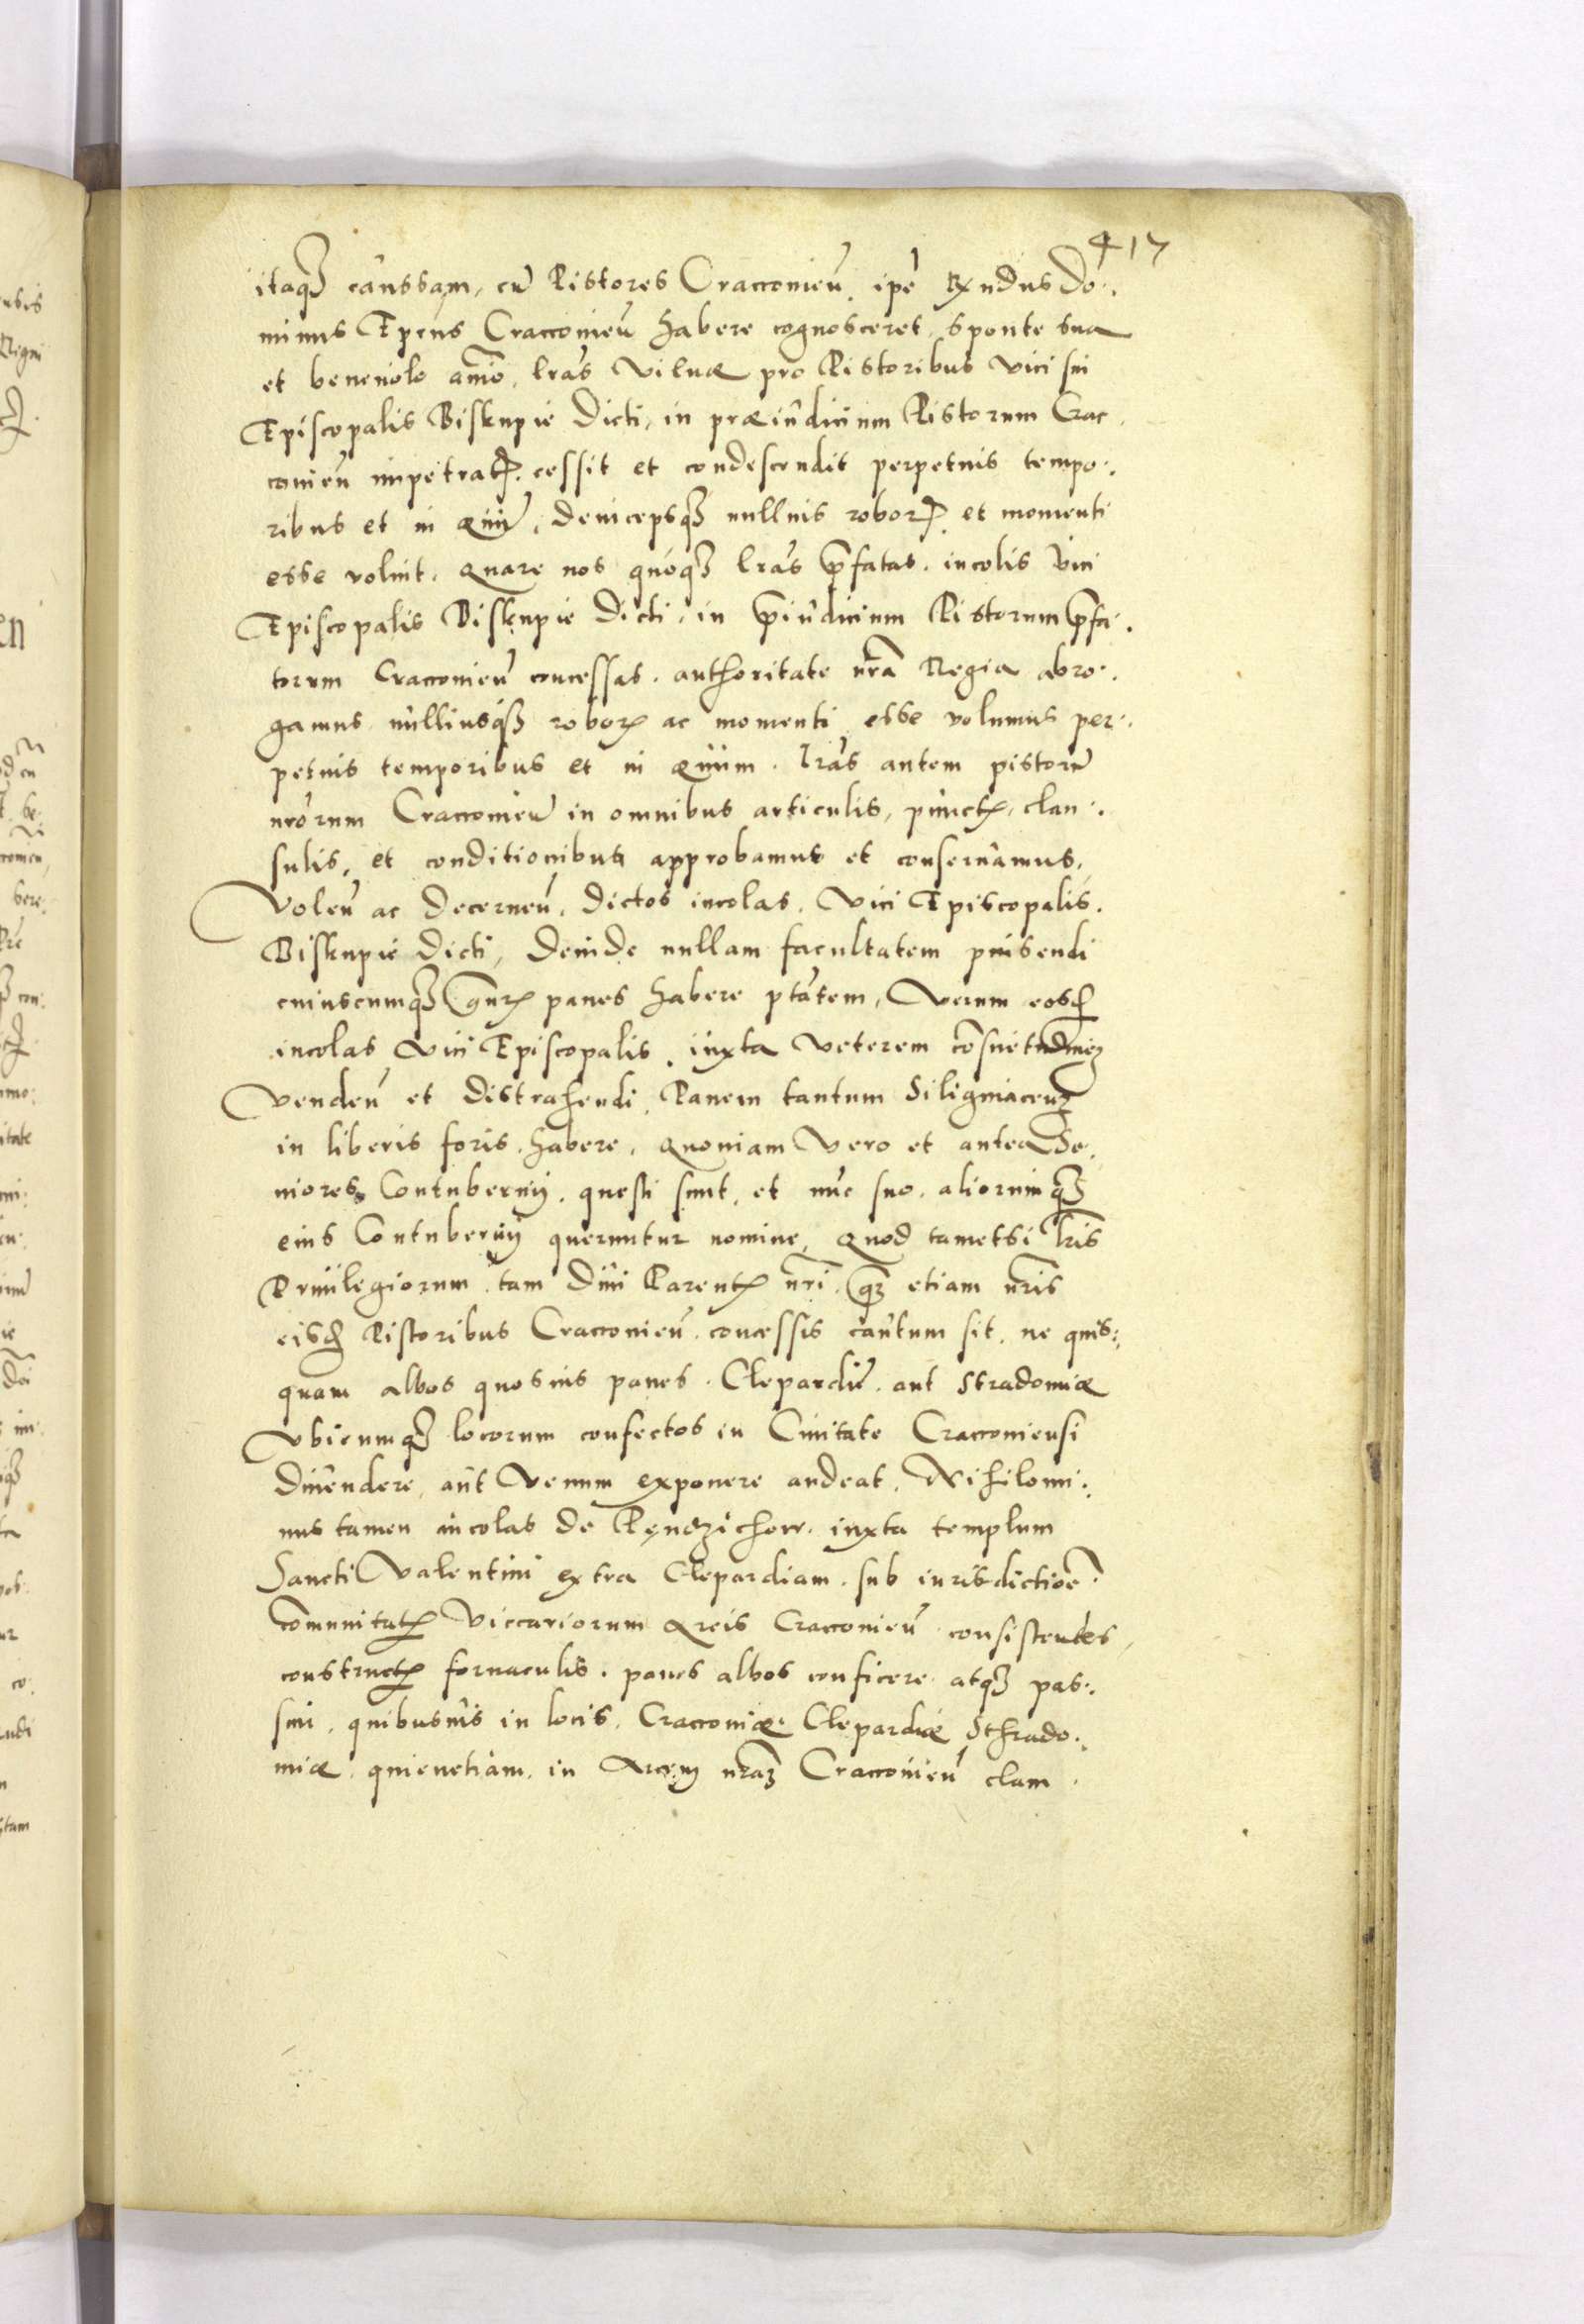 417
itaq3 caussam, cũ Pistores Cracconieñ. ipẽ Rxndus Do:
minus Epcus Cracconieñ habere cognosceret, sponte sua
et beneuolo aĩo, lr̃as Viluæ pro Pistoribus vici sui
Episcopalis Biskupie dicti, in præiudicium Pistorum Crac
conieñ impetratꝭ. cessit et condescendit perpetuis tempo:
ribus et in æuũ, deincepsq3 nullius roborꝭ et momenti
esse voluit. Quare nos quoq3 lr̃as p̃fatas. incolis vici
Episcopalis Biskupie dicti, in p̃iudicium Pistorum p̃fa:
torum Cracconieñ concessas. authoritate nr̃a Regia abro:
gamus nulliusq3 roborꝭ ac momenti esse volumus per:
petuis temporibus et in æuum. lr̃as autem pistorũ
nr̃orum Cracconieñ in omnibus articulis, punctꝭ, clau:
sulis, et conditionibus approbamus et conseruamus,
Voleñ ac decerneñ, dictos incolas. Vici Episcopalis.
Biskupie dicti, deinde nullam facultatem pinsendi
cuiuscumq3 gñrꝭ panes habere p̃tatem, Verum eosd
incolas Vici Episcopalis. iuxta veterem cõsuetudinez
vendeñ et distrahendi. Panem tantum Siligniaceuz
in liberis foris habere, Quoniam Vero et antea Se:
niores Contubernij. questi sunt. et nũc suo. aliorumq3
eius Contubernij queruntur nomine, Quod tametsi lr̃is
Priuilegiorum tam Diui Parentꝭ nr̃i. qz etiam nr̃is
eisd Pistoribus Cracconieñ. concessis cautum sit. ne quis:
quam albos quosuis panes. Clepardiæ. aut Stradomiæ
Vbicumq3 locorum confectos in Ciuitate Cracconiensi
diuendere, aut Venum exponere audeat, Nihilomi:
nus tamen incolas de Pędzichow. iuxta templum
Sancti Valentini extra Clepardiam. sub iurisdictioẽ
cõmunitatꝭ Viccariorum Qreis Cracconieñ consistentes,
constructꝭ fornaculis. panes albos conficere atq3 pas:
sim. quibusuis in locis, Cracconiæ. Clepardiæ Sthrado:
miæ. quinetiam. in Arcem nr̃az Cracconieñ clam